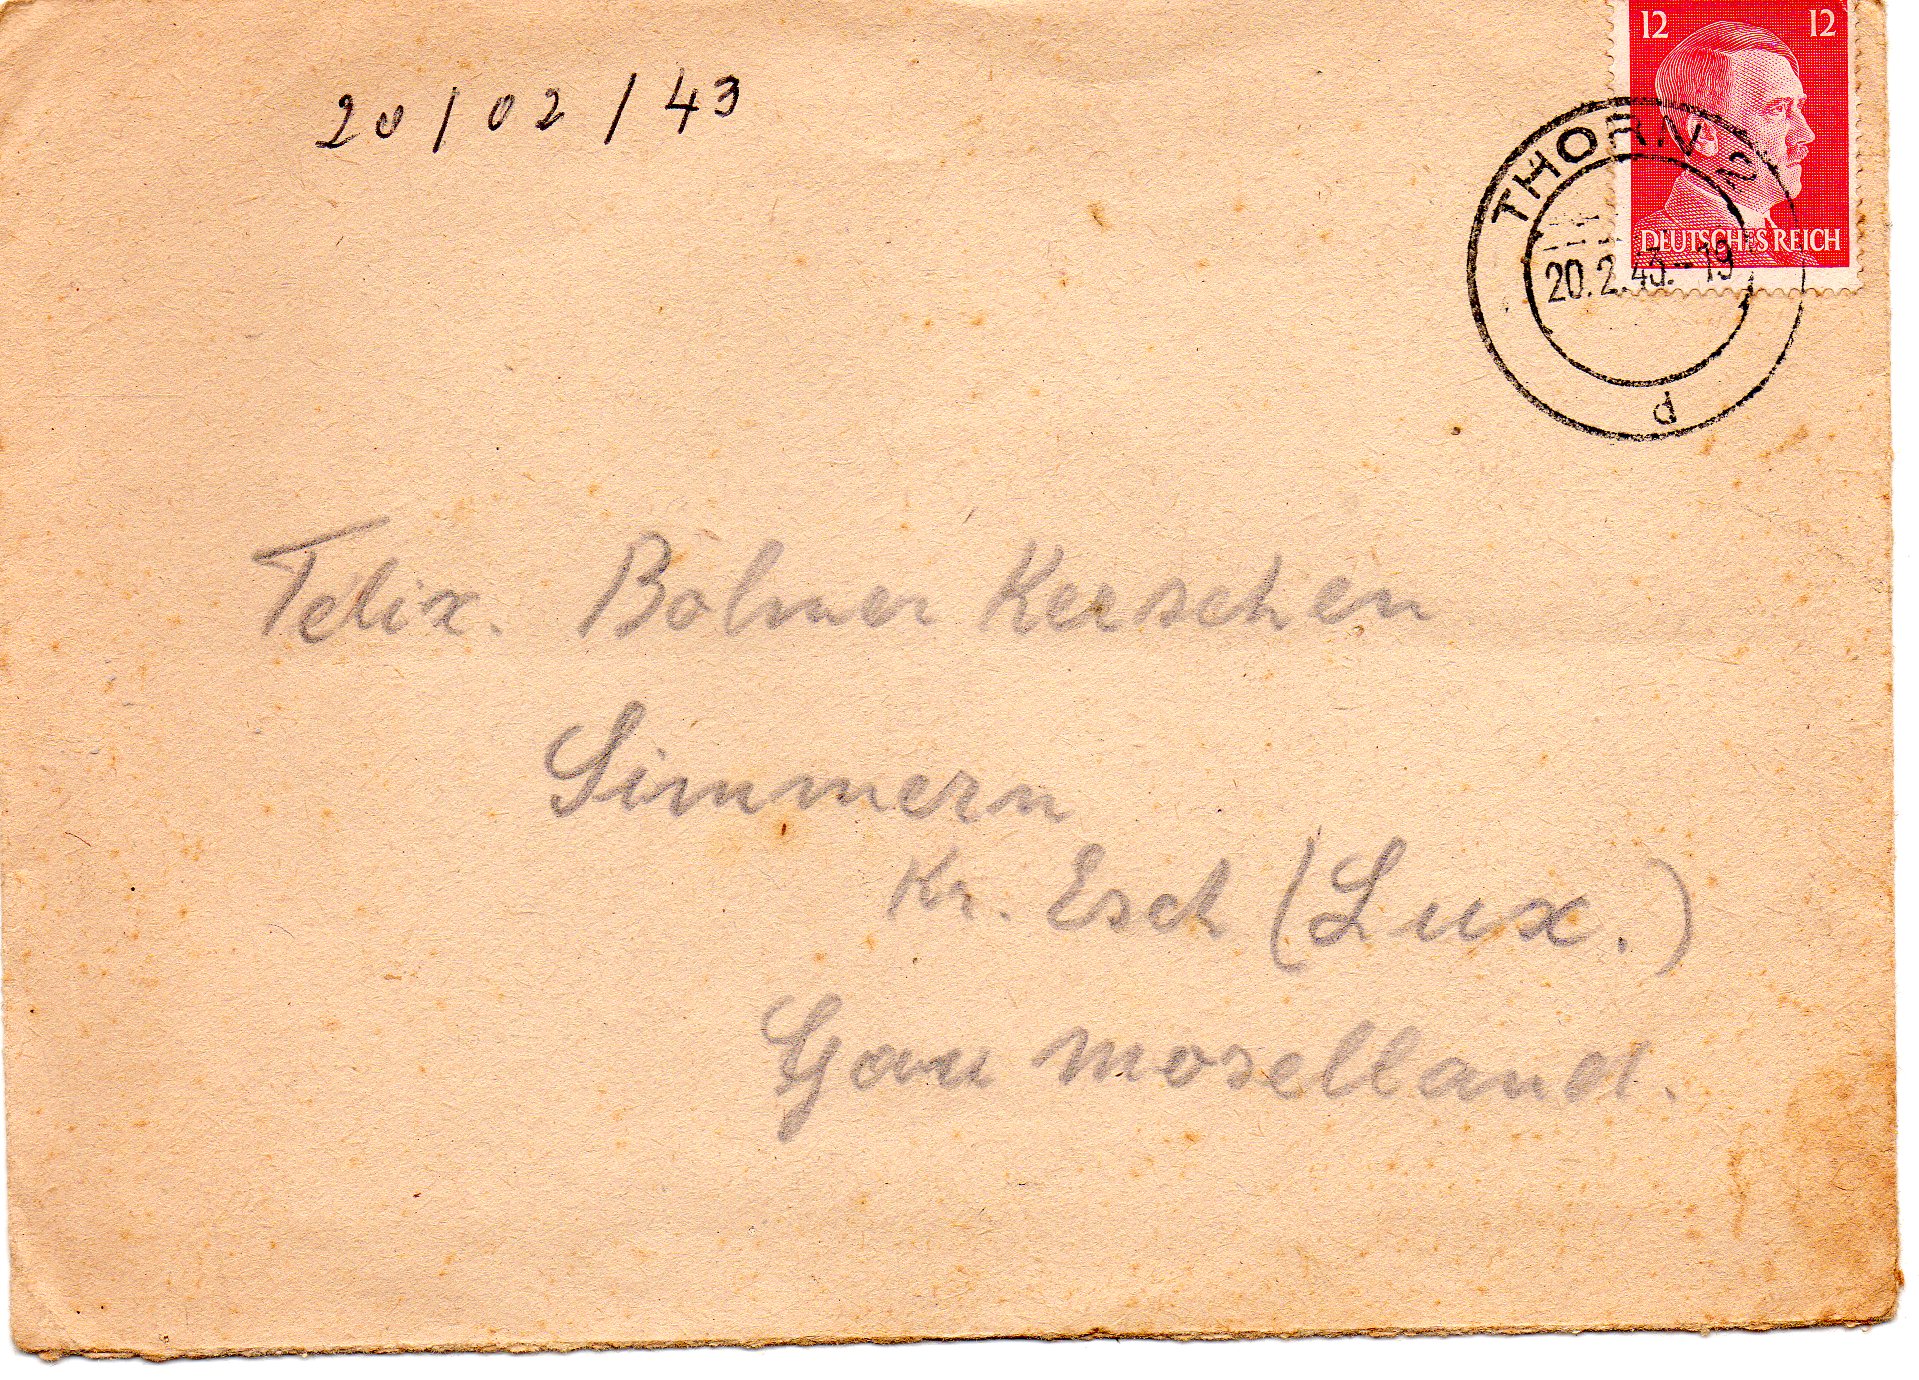 12 12
20/02/43
THORN 2
DEUTSCHES REICH
20.2.43.-19
d
Felix. Bolmer Kerschen
Simmern
Kr. Esch (Lux.)
Gau Moselland.